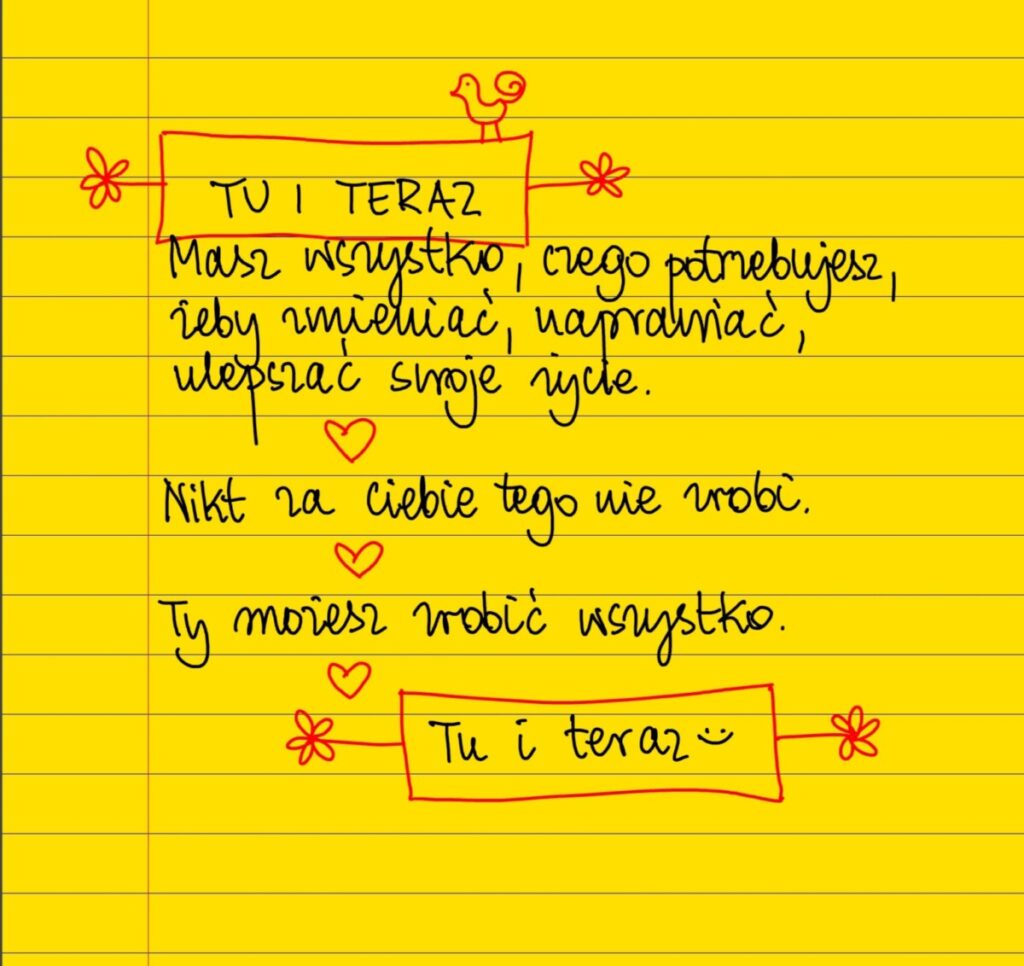 TU I TERAZ
Masz wszystko, czego potrzebujesz,
żeby zmieniać, naprawiać,
ulepszać swoje życie.
Nikt za ciebie tego nie zrobi.
Ty możesz zrobić wszystko.
Tu i teraz